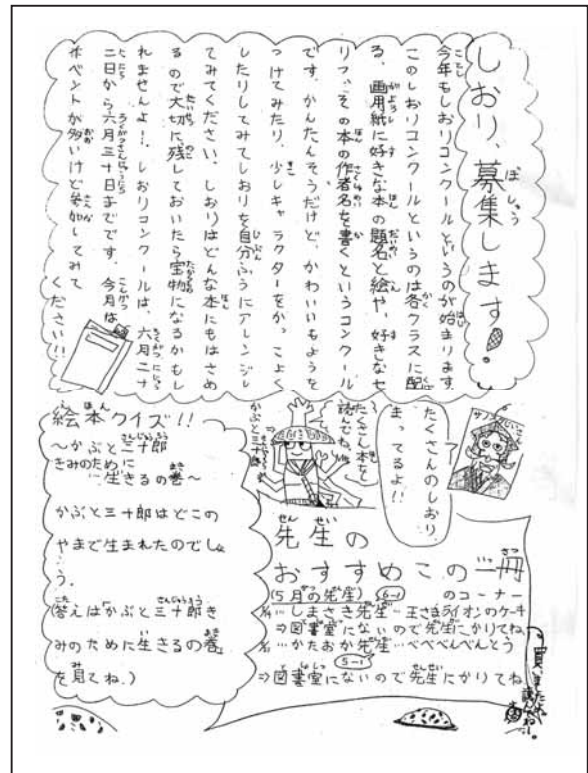 しおり、募集します!
今年もしおりコンクールというのが始まります。
このしおりコンクールというのは各クラスに配
る、画用紙に好きな本の題名と絵や、好きなセ
リフ、その本の作者名を書くというコンクール
です。かんたんそうだけど、かわいいもようを
つけてみたり、少しキャラクターをかっこよく
したりしてみてしおりを自分ふうにアレンジし
てみてください。しおりはどんな本にもはさめ
るので大切に残しておいたら宝物になるかもし
れませんよ!、しおりコンクールは、六月二十
二日から六月三十日までです。今月は
ベントが多いけど参加してみて
ください!!
たくさんのしおり
まってるよ!!
たくさん本を
読んでね。
かぶと三十郎
絵本クイズ!!
~かぶと三十郎
きみのために
…生きるの巻~
かぶと三十郎はどこの
やまで生まれたのでしょ
う。
(答えは「かぶと三十郎き
みのために生きるの巻
を見てね。)
先生の
おすすめこの一冊
のコーナー
(5月の先生)
6-1
…しまさき先生…王さまライオンのケーキ
⇒図書室にないので先生にかりてね
…かたおか先生…べべべんべんとう
5-1
⇒図書室にないので先生にかりてね